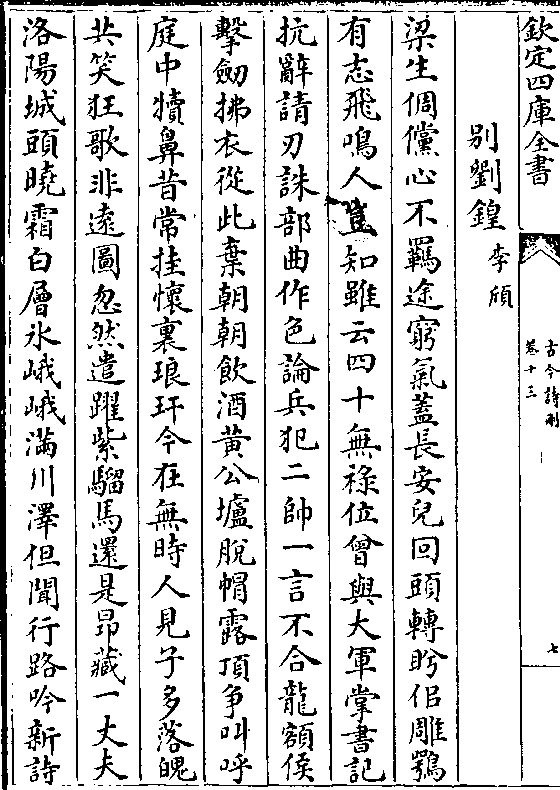 欽定四庫全書
古今詩刪
卷十三
七
别劉鍠 李頎
梁生倜儻心不羈途窮氣蓋長安兒回頭轉眄佀雕鶚
有志飛鳴人豈知雖云四十無禄位曾與大軍掌書記
抗辭請刃誅部曲作色論兵犯二帥一言不合龍額侯
擊劒拂衣從此棄朝朝飲酒黄公壚脫帽露頂争叫呼
庭中犢鼻昔常挂懷裏琅玕今在無時人見子多落魄
共笑狂歌非遠圖忽然遣躍紫騮馬還是昂藏一丈夫
洛陽城頭曉霜白層氷峨峨滿川澤但聞行路吟新詩